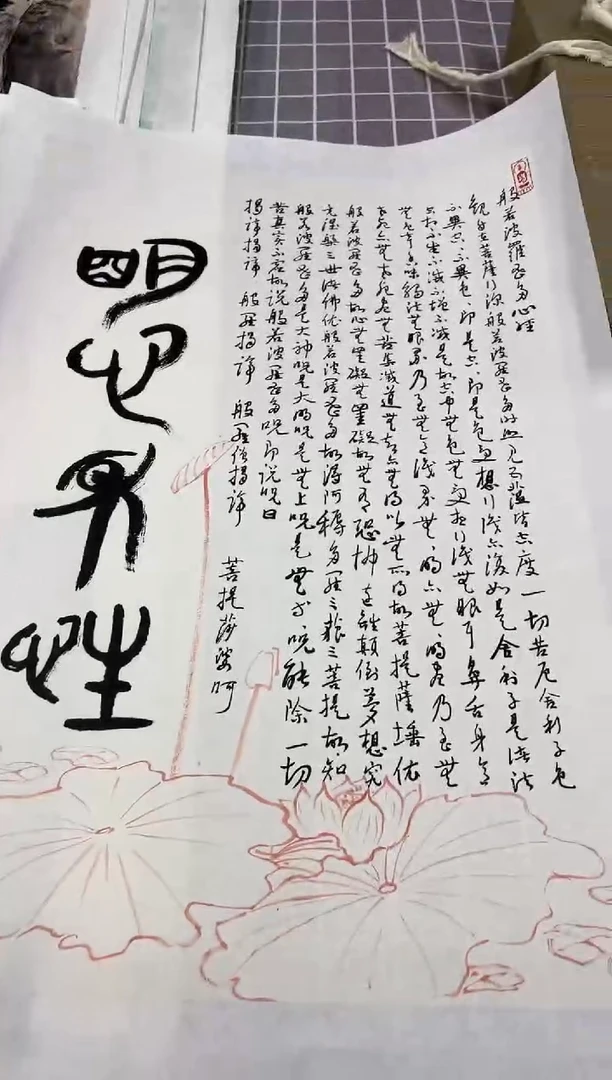 般若波羅蜜多心經
觀自在菩薩行深般若波羅蜜多時照見五蘊皆空度一切苦厄舍利子色
不異空、不異色、即是空、即是色受想行識亦復如是舍利子是諸法
空相不生不滅不增不減是故空中無色無受想行識無眼耳鼻舌身意
無色聲香味觸法無眼界乃至無意識界無、明亦無、明盡乃至無
老死亦無老死盡無苦集滅道無智亦無得以無所得故菩提薩埵依
般若波羅蜜多故心無罣礙無罣礙故無有恐怖遠離顛倒夢想究
竟涅槃三世諸佛依般若波羅蜜多故得阿耨多羅三藐三菩提故知
般若波羅蜜多是大神呪是大明呪是無上呪是無等、呪能除一切
苦真實不虛故說般若波羅蜜多呪即說呪曰
揭諦揭諦 般羅揭諦 般羅僧揭諦 菩提莎婆呵
明心見性